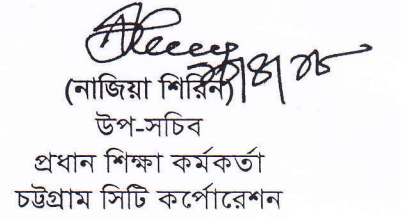 (নাজিয়া শিরিন)
উপ-সচিব
প্রধান শিক্ষা কর্মকর্তা
চট্টগ্রাম সিটি কর্পোরেশন